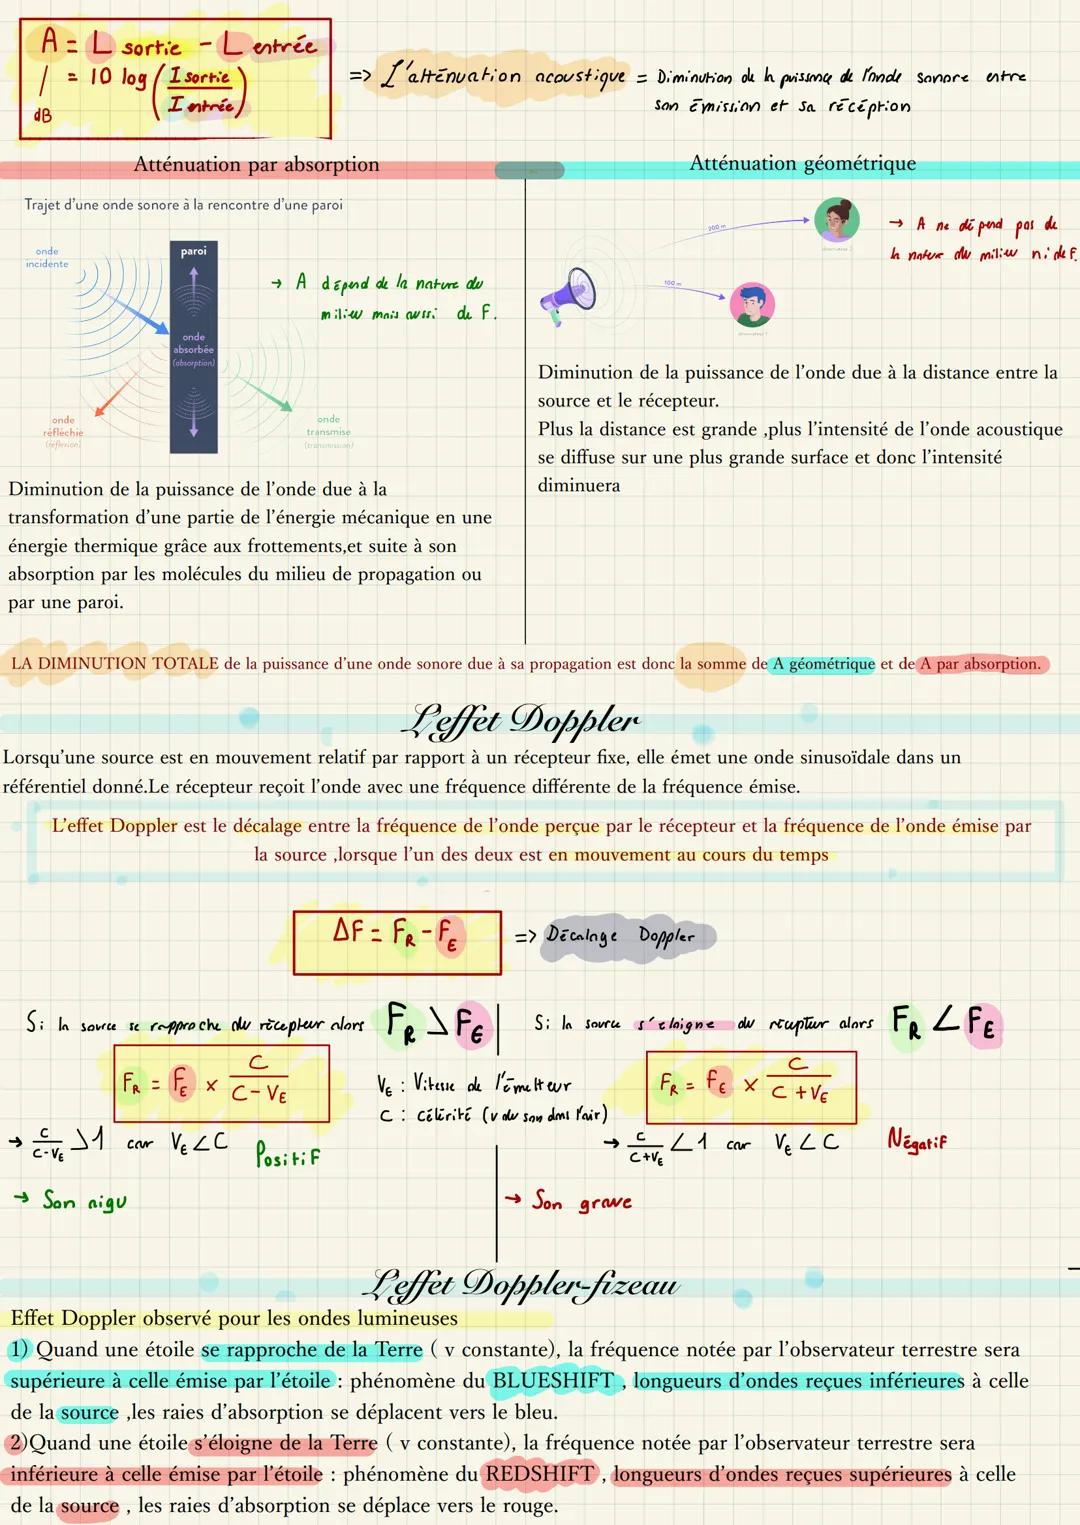 A = L sortie - L entrée
= 10 log ( I sortie / I entrée )
dB
=> L'atténuation acoustique = Diminution de la puissance de l'onde sonore entre
son émission et sa récéption
Atténuation par absorption
Trajet d'une onde sonore à la rencontre d'une paroi
onde
incidente
paroi
onde
absorbée
(absorption)
onde
réfléchie
(réflexion)
onde
transmise
(transmission)
→ A dépend de la nature du
milieu mais aussi de F.
Diminution de la puissance de l'onde due à la
transformation d'une partie de l'énergie mécanique en une
énergie thermique grâce aux frottements,et suite à son
absorption par les molécules du milieu de propagation ou
par une paroi.
Atténuation géométrique
200 m
observateur 2
100 m
observateur 1
→ A ne dépend pas de
la nature du milieu ni de F.
Diminution de la puissance de l'onde due à la distance entre la
source et le récepteur.
Plus la distance est grande ,plus l'intensité de l'onde acoustique
se diffuse sur une plus grande surface et donc l'intensité
diminuera
LA DIMINUTION TOTALE de la puissance d'une onde sonore due à sa propagation est donc la somme de A géométrique et de A par absorption.
L'effet Doppler
Lorsqu'une source est en mouvement relatif par rapport à un récepteur fixe, elle émet une onde sinusoïdale dans un
référentiel donné.Le récepteur reçoit l'onde avec une fréquence différente de la fréquence émise.
L'effet Doppler est le décalage entre la fréquence de l'onde perçue par le récepteur et la fréquence de l'onde émise par
la source ,lorsque l'un des deux est en mouvement au cours du temps
ΔF = FR - FE => Décalage Doppler
Si la source se rapproche du récepteur alors FR > FE
FR = FE × C / (C - VE)
→ C / (C - VE) > 1 car VE < C Positif
→ Son aigu
VE : Vitesse de l'émetteur
C : célérité (v du son dans l'air)
Si la source s'éloigne du récepteur alors FR < FE
FR = FE × C / (C + VE)
→ C / (C + VE) < 1 car VE < C Négatif
→ Son grave
L'effet Doppler-fizeau
Effet Doppler observé pour les ondes lumineuses
1) Quand une étoile se rapproche de la Terre ( v constante), la fréquence notée par l'observateur terrestre sera
supérieure à celle émise par l'étoile : phénomène du BLUESHIFT , longueurs d'ondes reçues inférieures à celle
de la source ,les raies d'absorption se déplacent vers le bleu.
2)Quand une étoile s'éloigne de la Terre ( v constante), la fréquence notée par l'observateur terrestre sera
inférieure à celle émise par l'étoile : phénomène du REDSHIFT , longueurs d'ondes reçues supérieures à celle
de la source , les raies d'absorption se déplace vers le rouge.